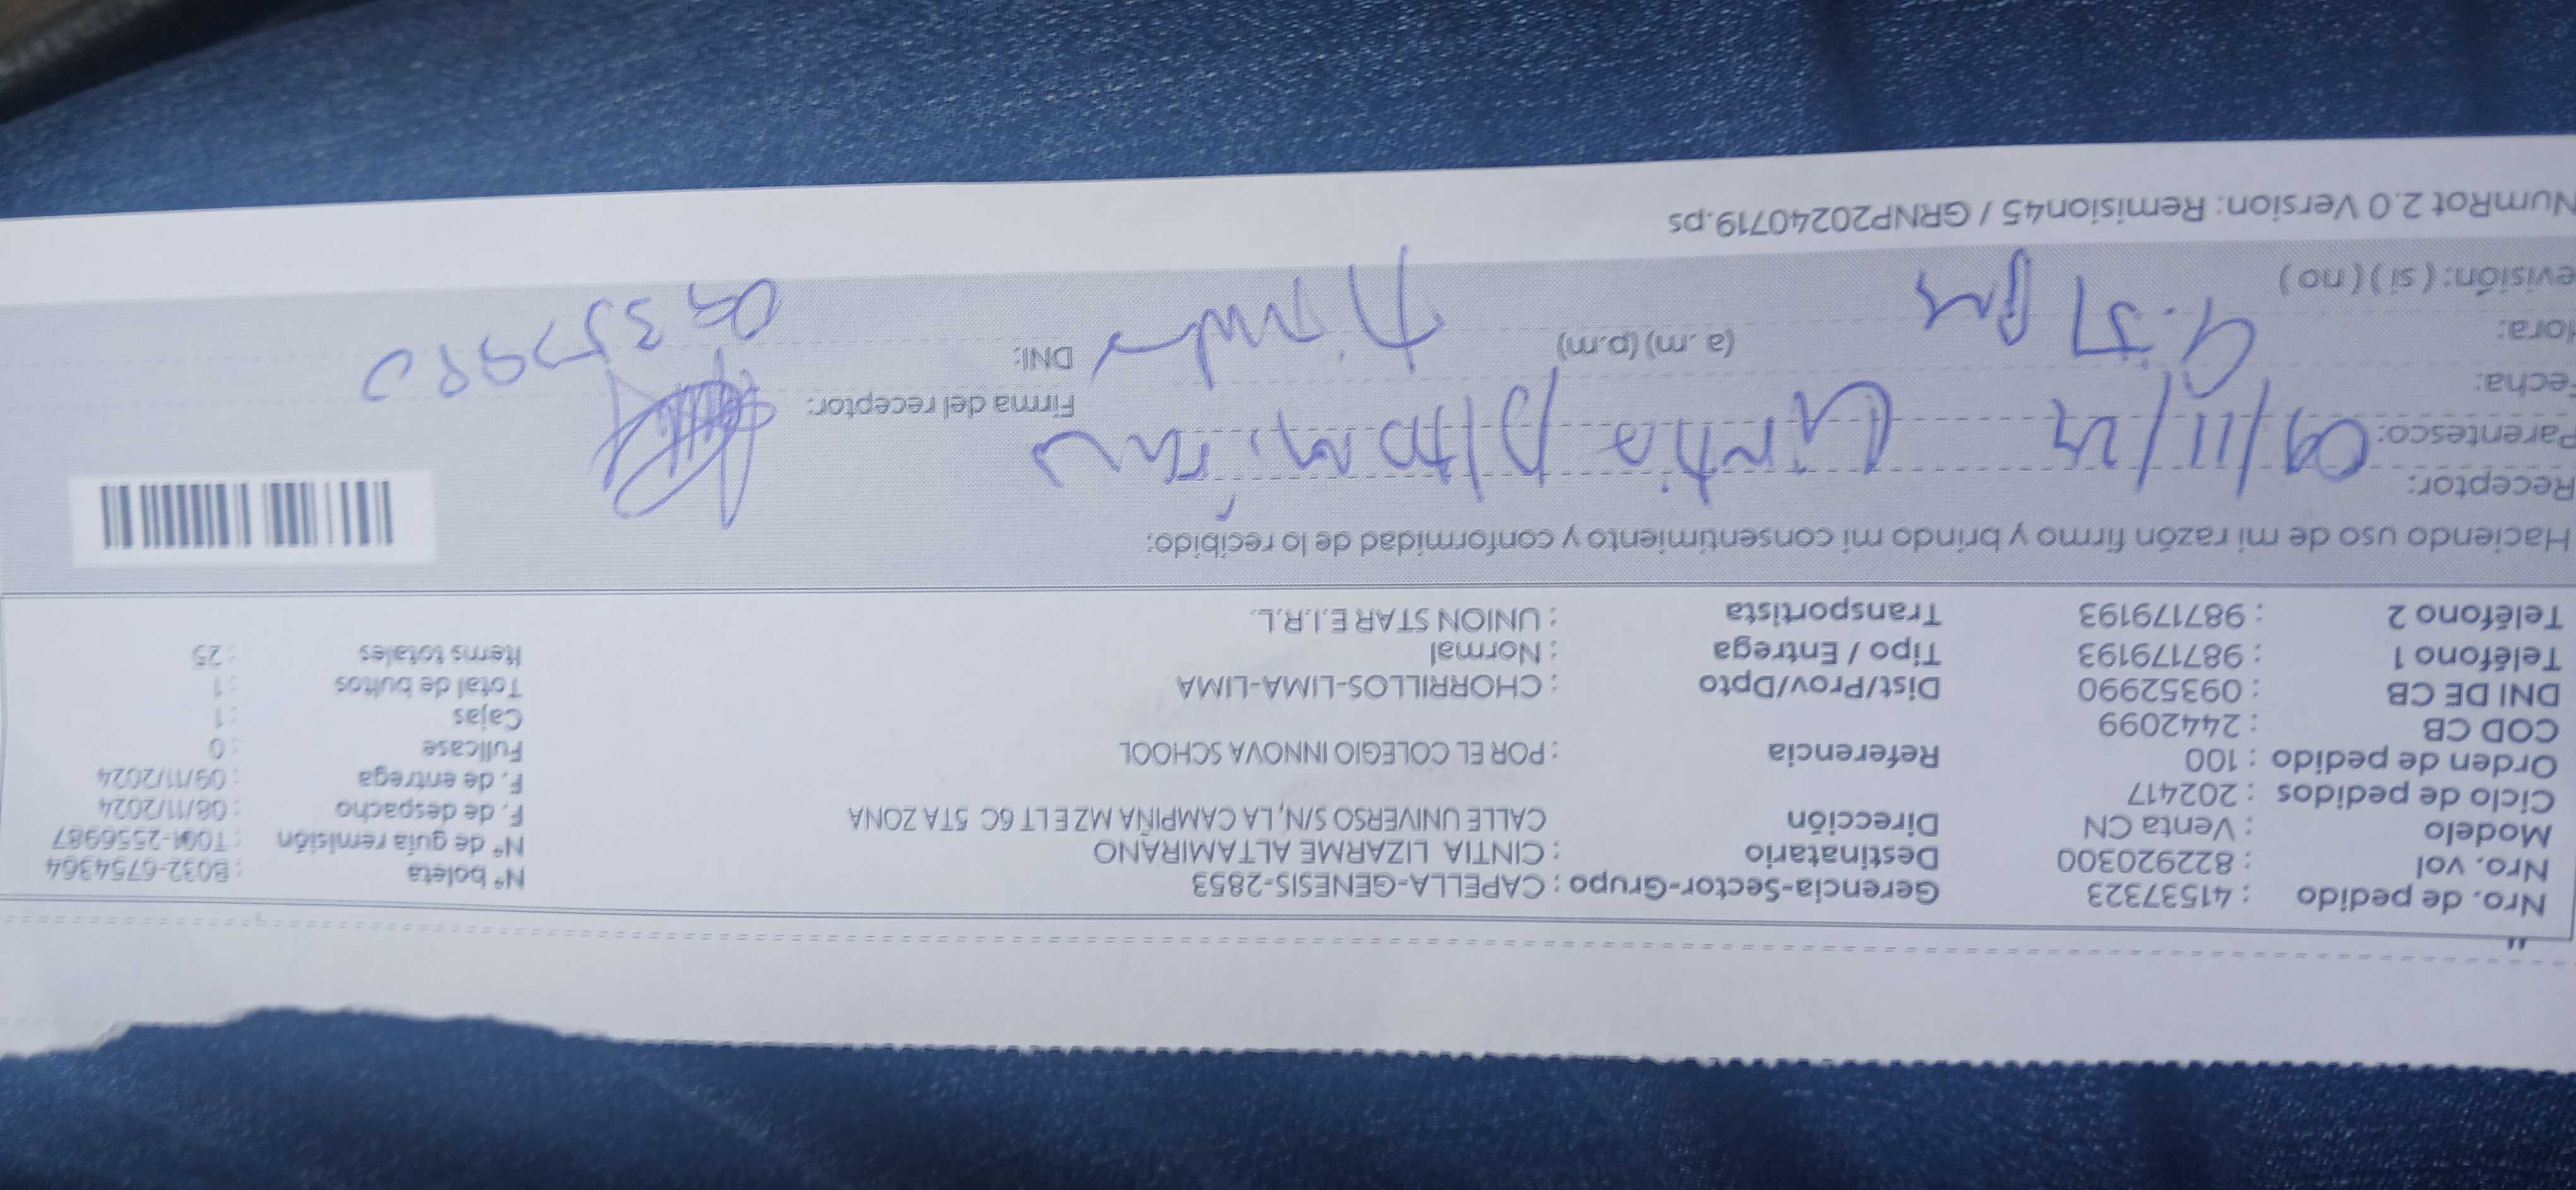 Nro. de pedido : 41537323 Gerencia-Sector-Grupo : CAPELLA-GENESIS-2853 N° boleta : B032-6754364
Nro. vol : 822920300 Destinatario : CINTIA LIZARME ALTAMIRANO N° de guía remisión : T001-2556987
Modelo : Venta CN Dirección CALLE UNIVERSO S/N, LA CAMPIÑA MZ E LT 6C 5TA ZONA F. de despacho : 08/11/2024
Ciclo de pedidos : 202417 F. de entrega : 09/11/2024
Orden de pedido : 100 Referencia : POR EL COLEGIO INNOVA SCHOOL Fullcase : 0
COD CB : 2442099 Cajas : 1
DNI DE CB : 09352990 Dist/Prov/Dpto : CHORRILLOS-LIMA-LIMA Total de bultos : 1
Teléfono 1 : 987179193 Tipo / Entrega : Normal Items totales : 25
Teléfono 2 : 987179193 Transportista : UNION STAR E.I.R.L.
Haciendo uso de mi razón firmo y brindo mi consentimiento y conformidad de lo recibido:
Receptor:
Parentesco: 09/11/24 Cintia Altamirano
Fecha: Firma del receptor:
Hora: 4:37 pm (a.m) (p.m) Titular DNI:
evisión: ( si ) ( no )
NumRot 2.0 Version: Remision45 / GRNP20240719.ps